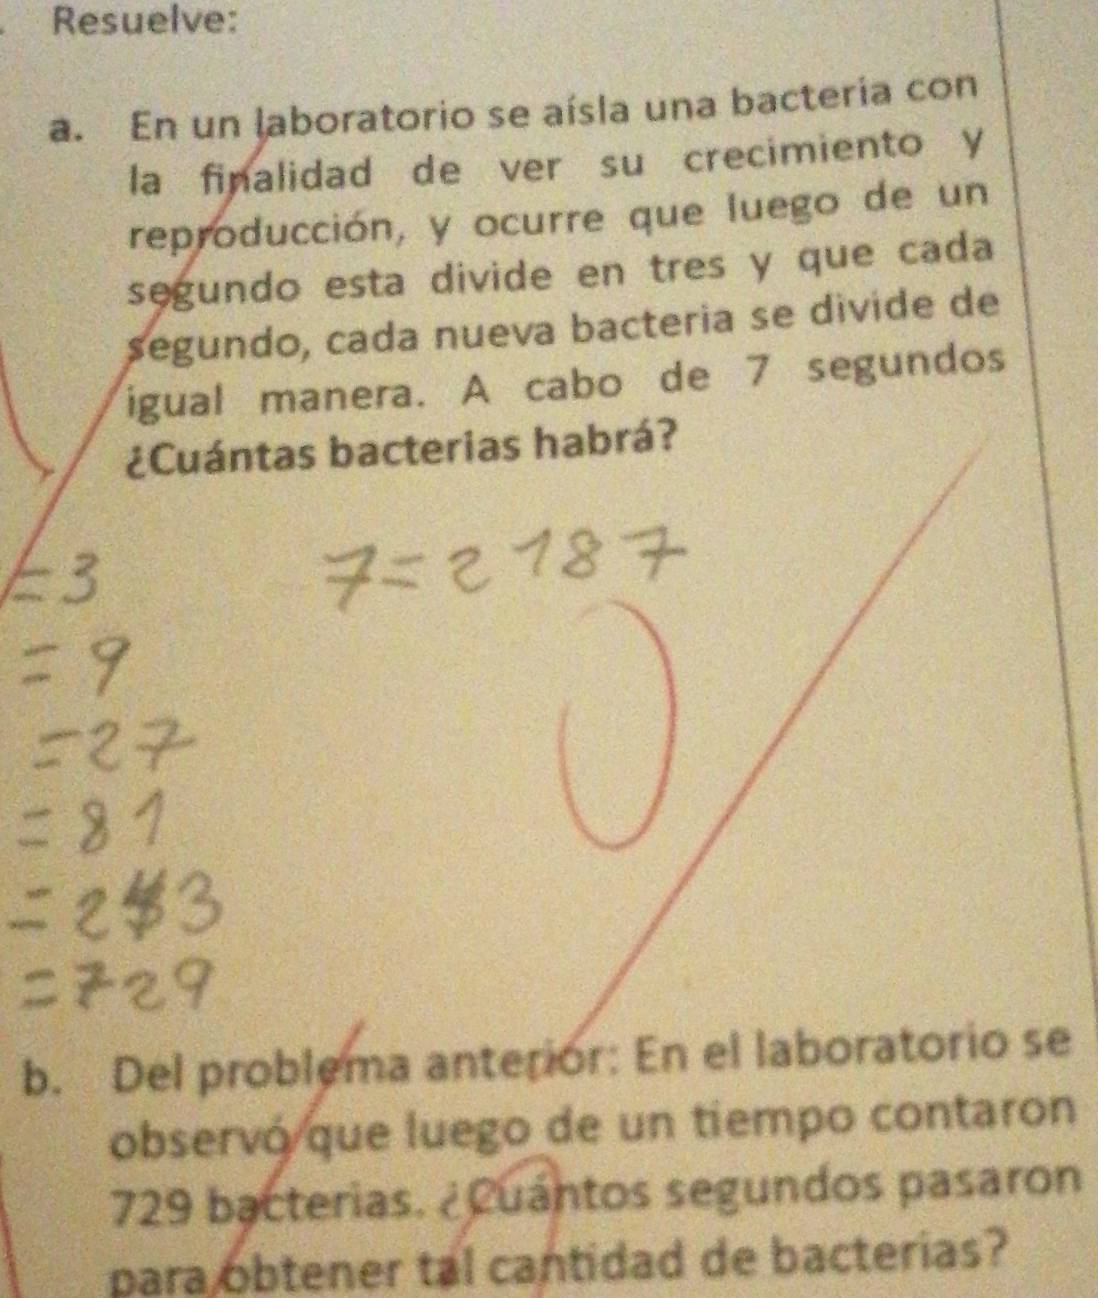 Resuelve:
a. En un laboratorio se aísla una bacteria con
la finalidad de ver su crecimiento y
reproducción, y ocurre que luego de un
segundo esta divide en tres y que cada
segundo, cada nueva bacteria se divide de
igual manera. A cabo de 7 segundos
¿Cuántas bacterias habrá?
=3 7=2187
=9
=27
=81
=243
=729
b. Del problema anterior: En el laboratorio se
observó que luego de un tiempo contaron
729 bacterias. ¿Cuántos segundos pasaron
para obtener tal cantidad de bacterias?